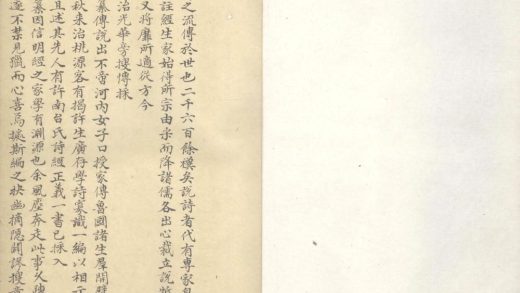 之流傳於世也二千六百餘禩矣說詩者代有專家自
註經生家始得所宗由宋而降諸儒各出心裁立說
又將靡所適從方今
治光華旁搜博採
纂傳說出不啻河內女子口授家傳魯國諸生羣開
秋來治桃源客有揭許生廣存學詩纂識一編以相示
且述其先人有許南台氏詩經正義一書已採入
纂因信明經之家學有淵源也余風塵奔走此事久
逐不禁見獵而心喜焉據斯編之抉幽摘隱闢謬搜